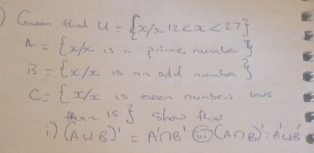 ) Given that U = {x/x 12<x<27}
A = {x/x is a prime number}
B = {x/x is an odd number}
C = {x/x is even numbers less
than 15} Show that
i) (A∪B)' = A'∩B' (ii) (A∩B)' = A'∪B'